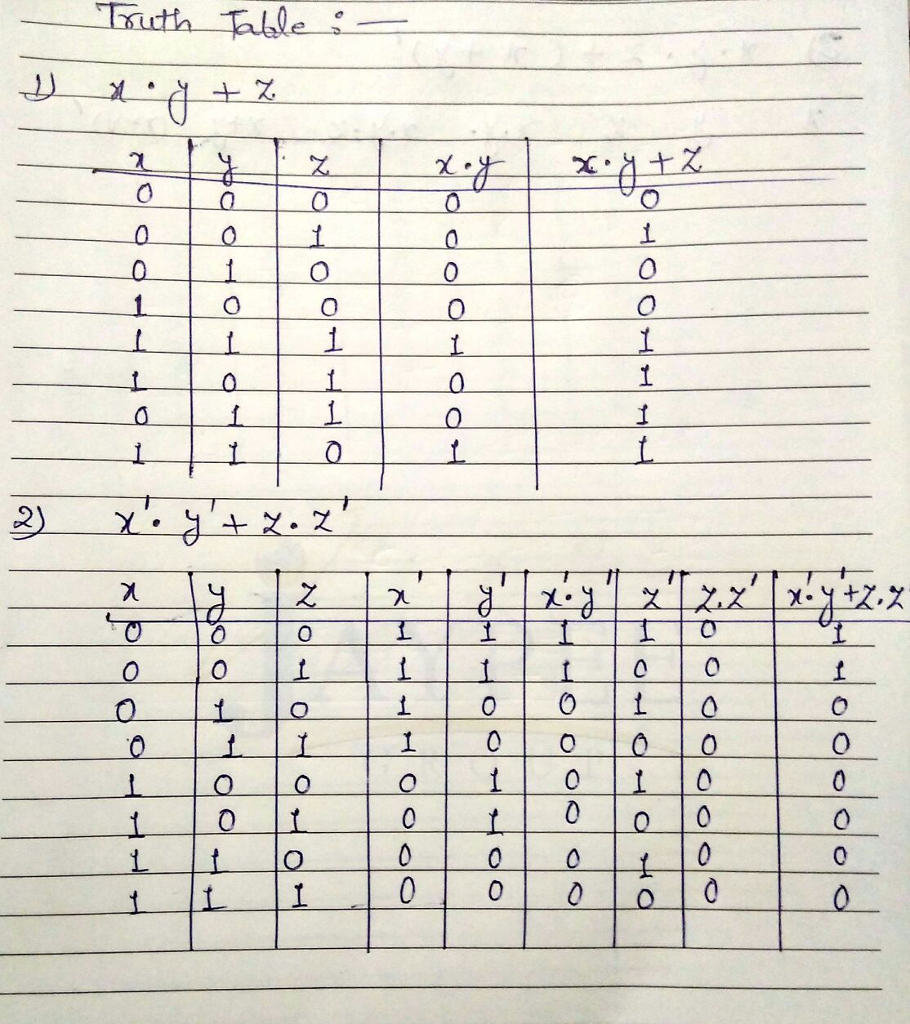 Truth Table :—
1) x · y + z
x y z x·y x·y+z
0 0 0 0 0
0 0 1 0 1
0 1 0 0 0
1 0 0 0 0
1 1 1 1 1
1 0 1 0 1
0 1 1 0 1
1 1 0 1 1
2) x'· y' + z · z'
x y z x' y' x'·y' z' z.z' x'·y'+z.z
0 0 0 1 1 1 1 0 1
0 0 1 1 1 1 0 0 1
0 1 0 1 0 0 1 0 0
0 1 1 1 0 0 0 0 0
1 0 0 0 1 0 1 0 0
1 0 1 0 1 0 0 0 0
1 1 0 0 0 0 1 0 0
1 1 1 0 0 0 0 0 0